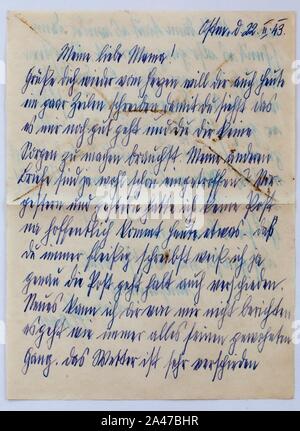 Osten, d. 22. II. 43.
Meine liebe Mama!
Grüße dich wieder von Herzen will dir auch heute
ein paar Zeilen schreiben damit du sehst das
es mir noch gut geht und du dir keine
Sorgen zu machen brauchst. Meine andern
Briefe sind ja wohl schon eingetroffen. Vor
gestern und gestern hatte ich keine Post
na hoffentlich kommt heute etwas. das
du immer fleißig schreibst weiß ich ja
genau die Post geht halt auch verschieden.
Neues kann ich dir von mir nicht berichten
es geht wie immer alles seinen gewohnten
Gang. das Wetter ist sehr verschieden
alamy
Image ID: 2A47BHR
www.alamy.com